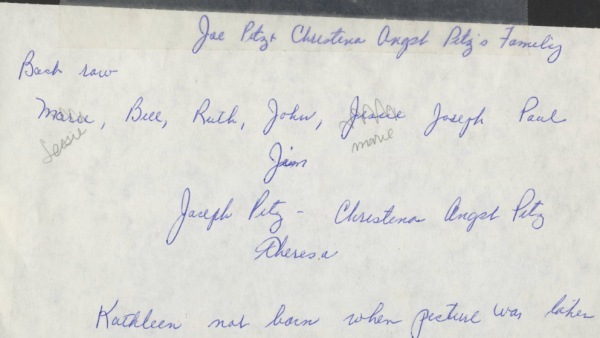 Joe Petz & Christena Angst Petz's Family
Back row
Marie, Bill, Ruth, John, Jessie Joseph Paul
Jessie marie
Jim
Joseph Petz - Christena Angst Petz
Theresa
Kathleen not born when picture was taken